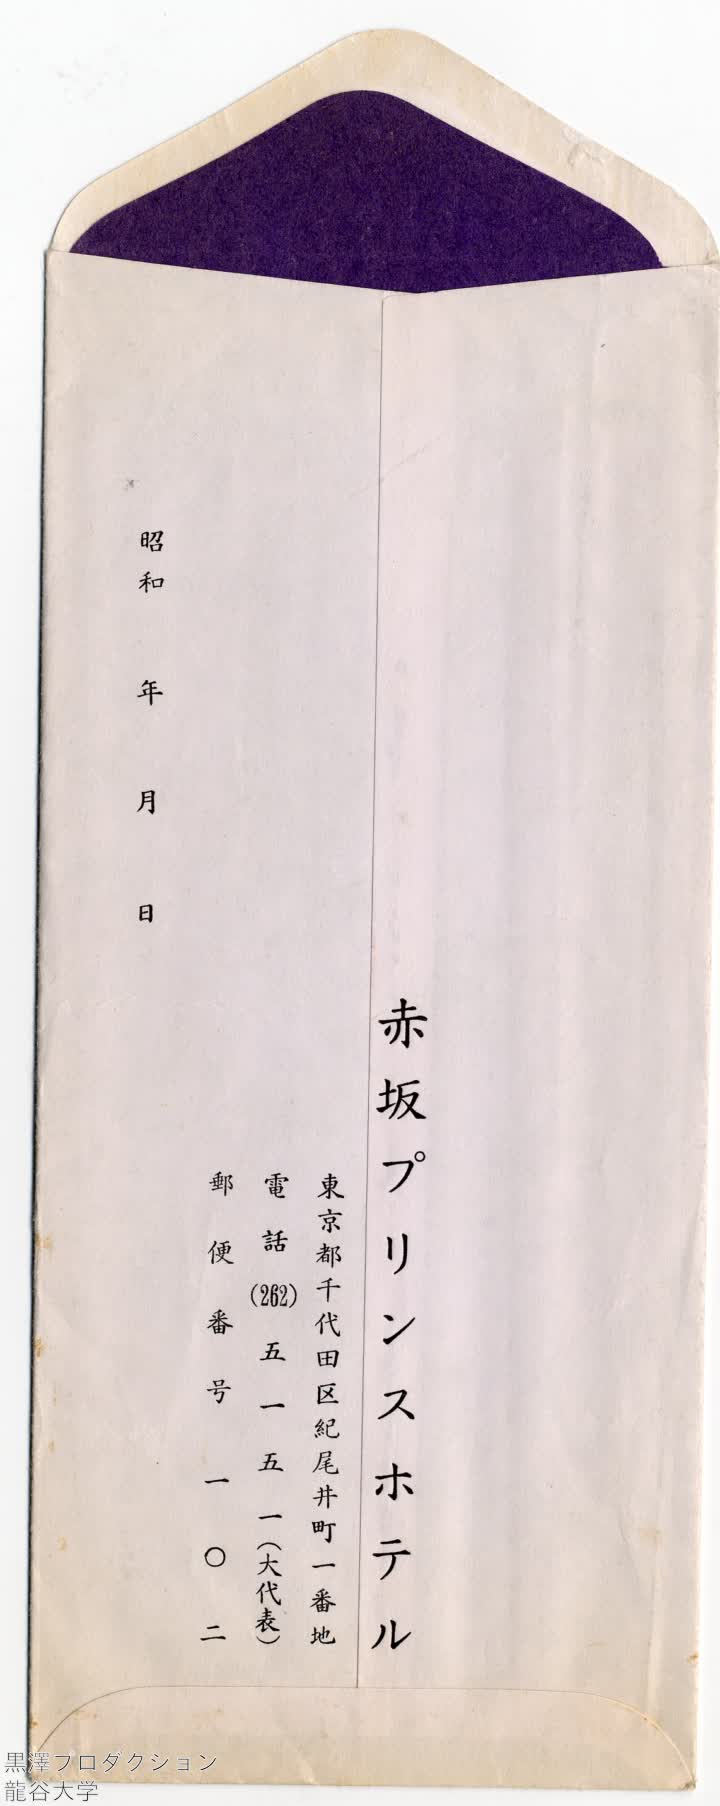 赤坂プリンスホテル
東京都千代田区紀尾井町一番地
電話(262)五一五一(大代表)
郵便番号一〇二
昭和 年 月 日
黒澤プロダクション
龍谷大学